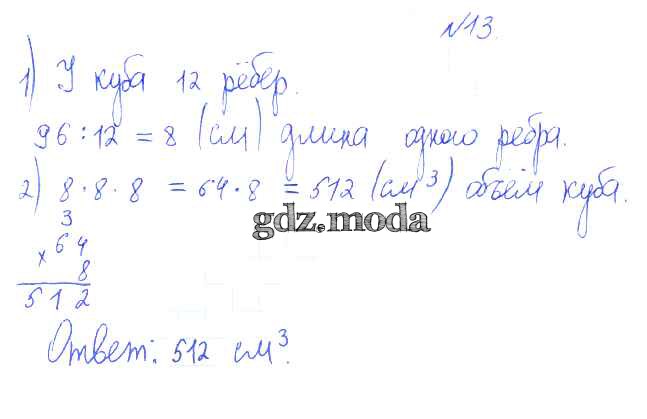 №13.
1) У куба 12 рёбер.
96 : 12 = 8 (см) длина одного ребра.
2) 8 · 8 · 8 = 64 · 8 = 512 (см³) объём куба.
gdz.moda
3
× 64
8
512
Ответ: 512 см³.